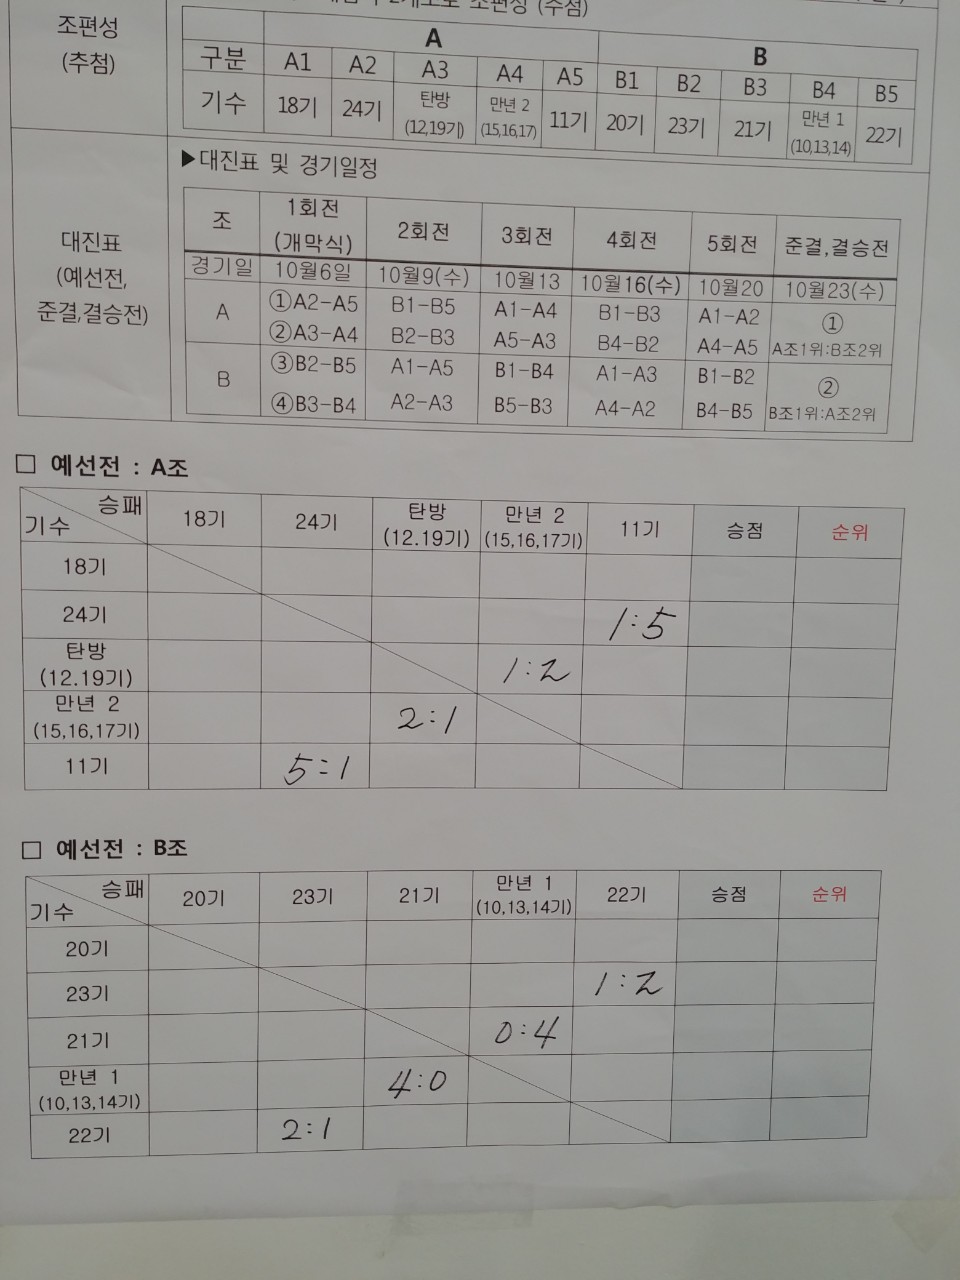 조편성 (추첨)
A B
구분 A1 A2 A3 A4 A5 B1 B2 B3 B4 B5
기수 18기 24기 탄방 (12,19기) 만년 2 (15,16,17) 11기 20기 23기 21기 만년 1 (10,13,14) 22기
대진표
(예선전,
준결,결승전)
▶대진표 및 경기일정
조 1회전 (개막식) 2회전 3회전 4회전 5회전 준결,결승전
경기일 10월6일 10월9(수) 10월13 10월16(수) 10월20 10월23(수)
A ①A2-A5 B1-B5 A1-A4 B1-B3 A1-A2 ①
②A3-A4 B2-B3 A5-A3 B4-B2 A4-A5 A조1위:B조2위
B ③B2-B5 A1-A5 B1-B4 A1-A3 B1-B2 ②
④B3-B4 A2-A3 B5-B3 A4-A2 B4-B5 B조1위:A조2위
□ 예선전 : A조
승패 기수 18기 24기 탄방 (12.19기) 만년 2 (15,16,17기) 11기 승점 순위
18기
24기 1:5
탄방 (12.19기) 1:2
만년 2 (15,16,17기) 2:1
11기 5:1
□ 예선전 : B조
승패 기수 20기 23기 21기 만년 1 (10,13,14기) 22기 승점 순위
20기
23기 1:2
21기 0:4
만년 1 (10,13,14기) 4:0
22기 2:1